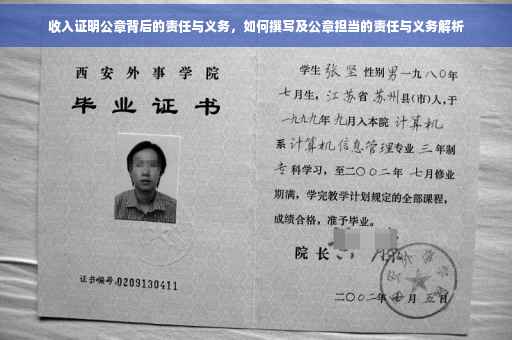 收入证明公章背后的责任与义务，如何撰写及公章担当的责任与义务解析
西安外事学院
毕业证书
证书编号:0209130411
学生 张坚 性别 男 一九八〇年
七月生，江苏省 苏州县(市)人,于
一九九九年 九月入本院 计算机
系 计算机信息管理专业 三 年制
专科学习，至二〇〇二年 七月修业
期满，学完教学计划规定的全部课程，
成绩合格，准予毕业。
院长
二〇〇二年 七月 五日